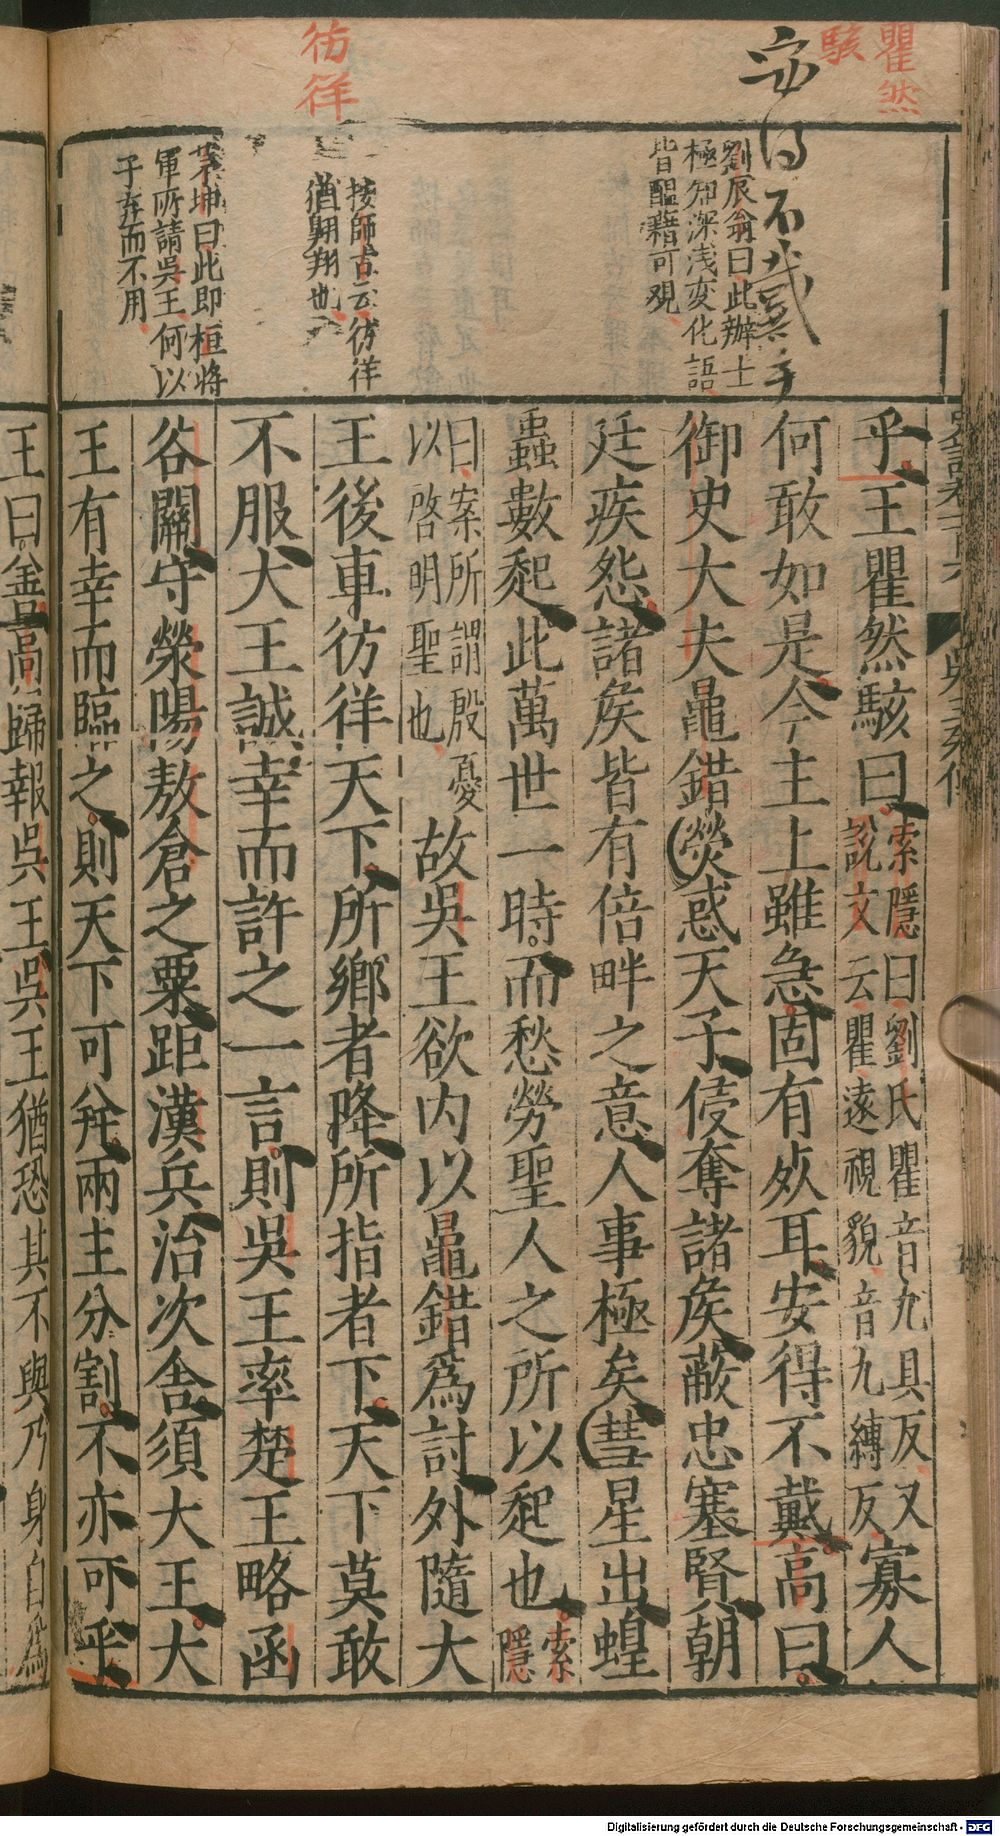 瞿然
駭
彷徉
安得不戴乎
劉辰翁曰此辦士
極知深浅変化語
皆醞藉可观
按師古云彷徉
猶翱翔也
茅坤曰此即桓將
軍所請吳王何以
于弃而不用
乎王瞿然駭曰
索隱曰劉氏瞿音九具反又
說文云瞿遠視貌音九縛反
寡人
何敢如是今主上雖急固有死耳安得不戴高曰
御史大夫鼂錯熒惑天子侵奪諸侯蔽忠塞賢朝
廷疾怨諸侯皆有倍畔之意人事極矣彗星出蝗
蟲數起此萬世一時而愁勞聖人之所以起也
索
隱
曰案所謂殷憂
以啓明聖也
故吳王欲内以鼂錯爲討外隨大
王後車彷徉天下所鄉者降所指者下天下莫敢
不服大王誠幸而許之一言則吳王率楚王略函
谷關守滎陽敖倉之粟距漢兵治次舍須大王大
王有幸而臨之則天下可并兩主分割不亦可乎
王曰善高歸報吳王吳王猶恐其不與乃身自爲
Digitalisierung gefördert durch die Deutsche Forschungsgemeinschaft - DFG